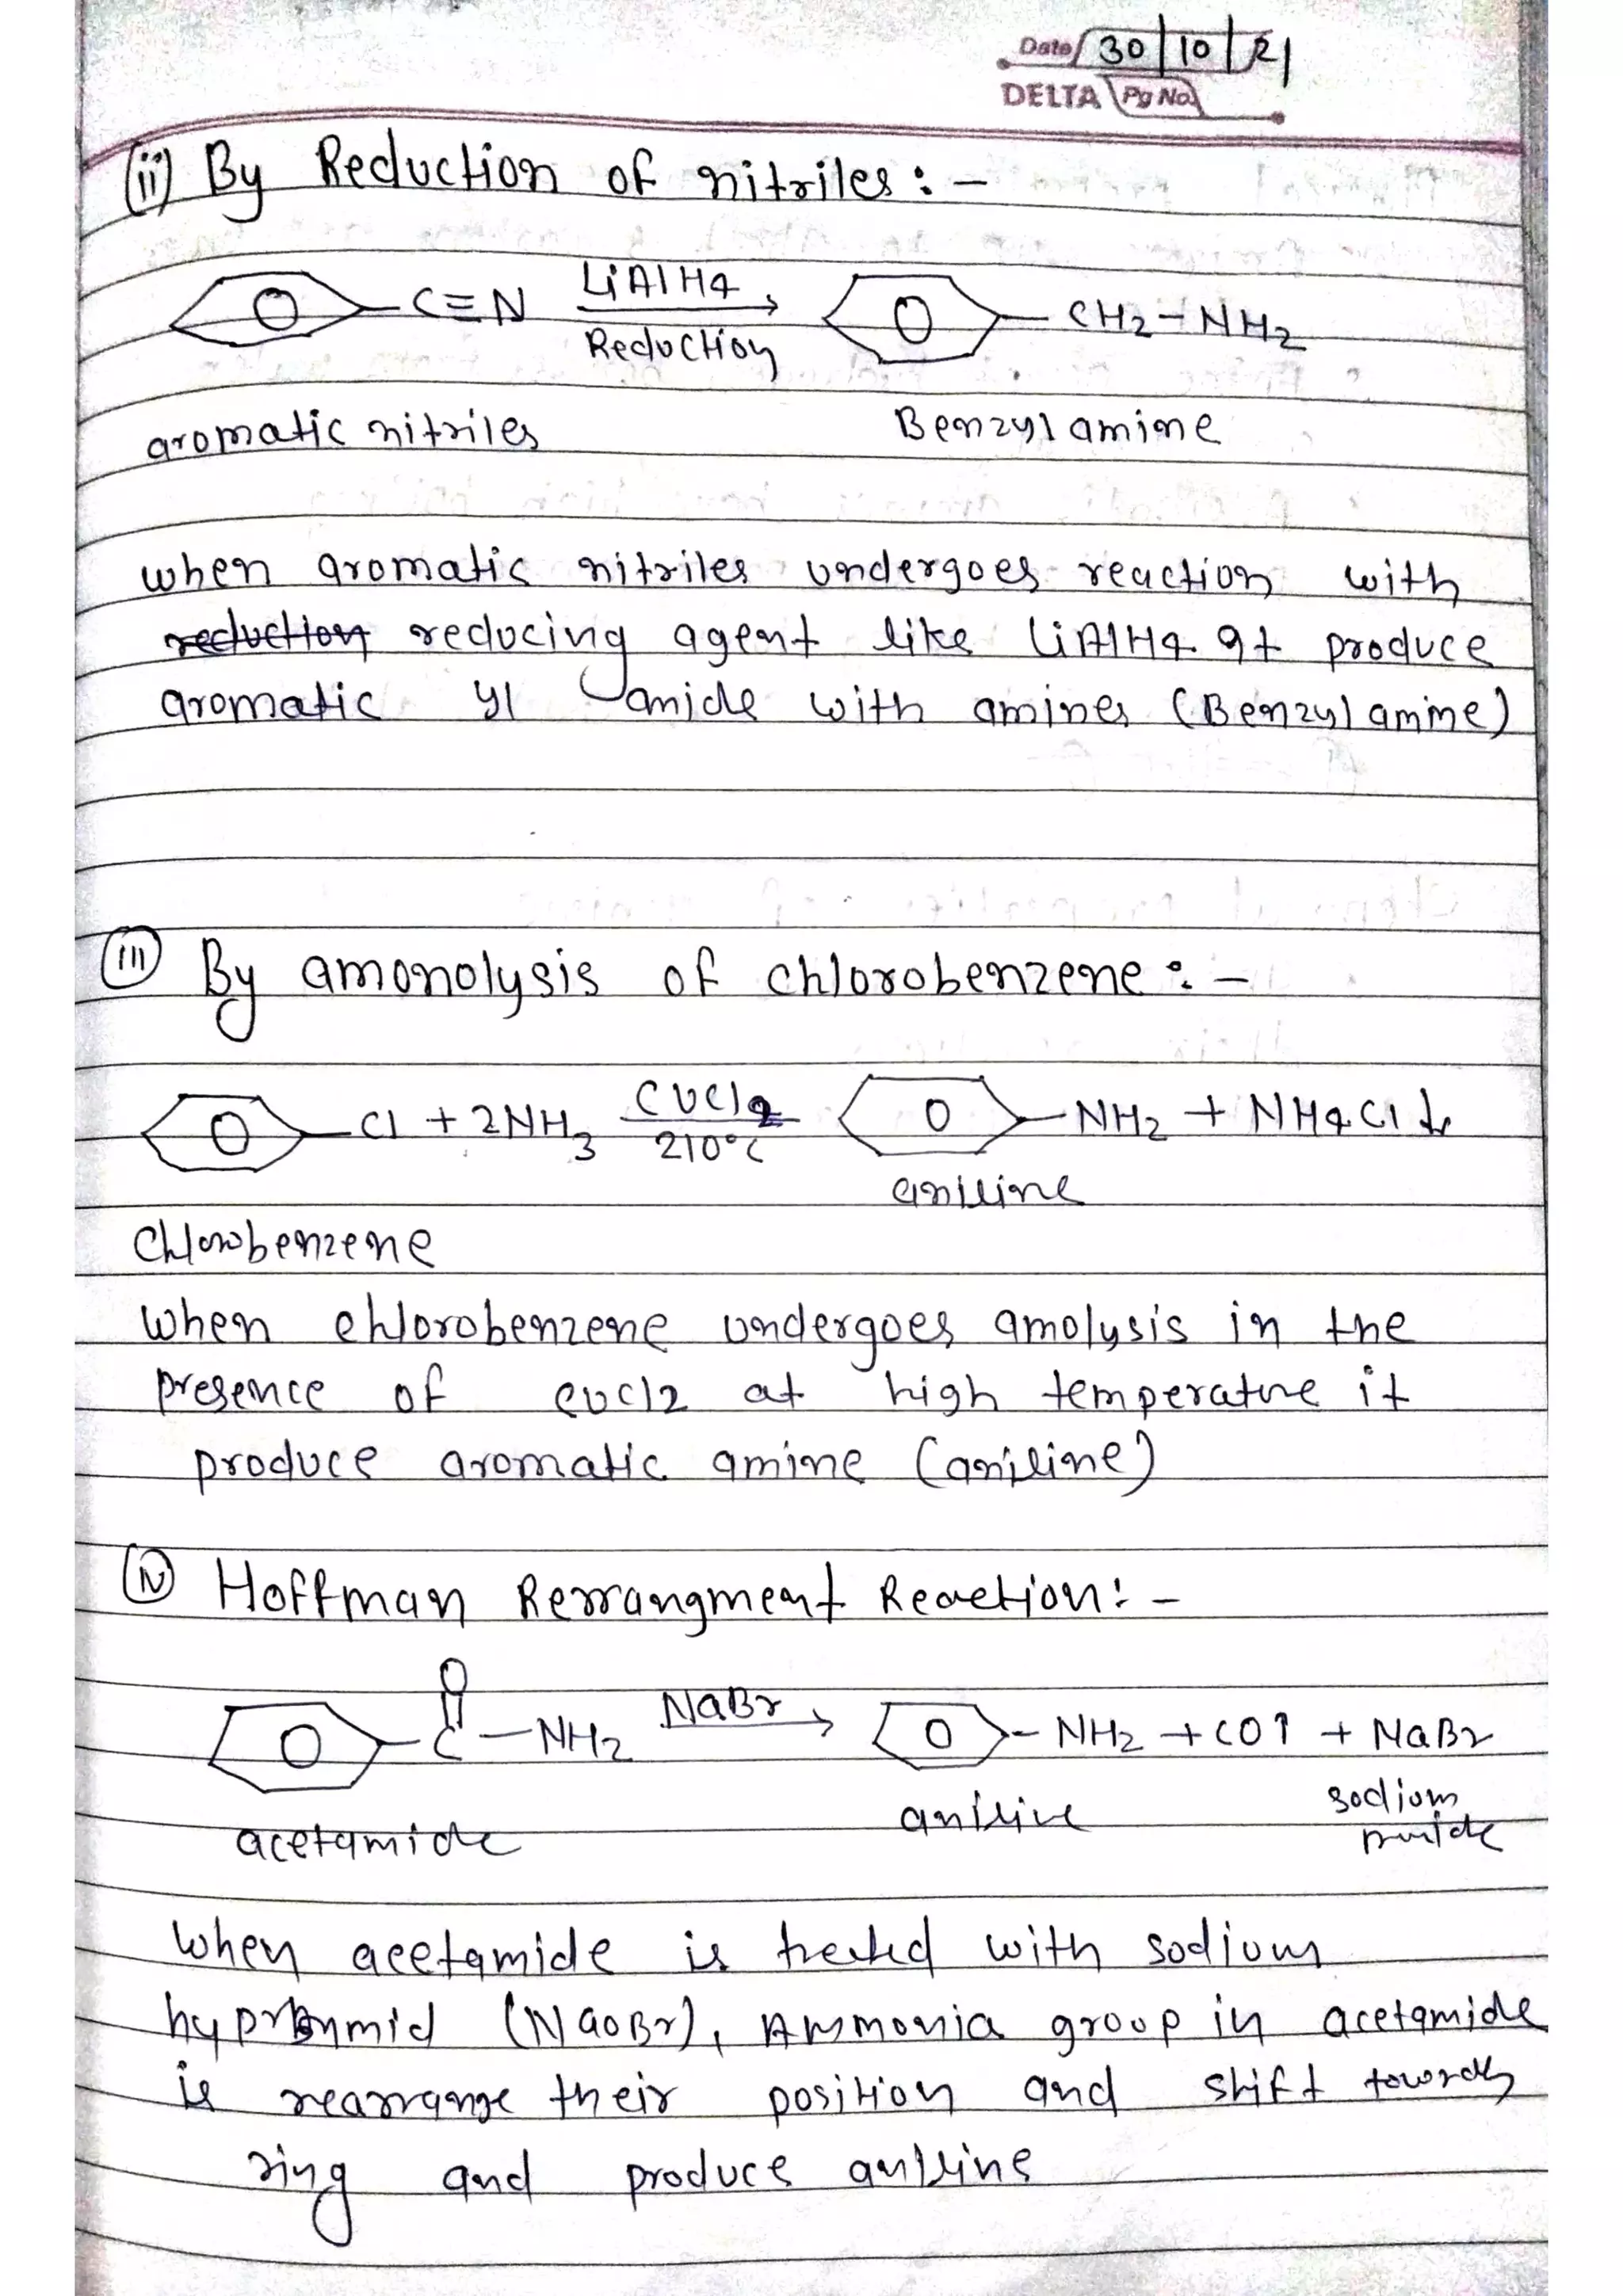 Date 30/10/21
DELTA Pg No.
(ii) By Reduction of nitriles :-
C≡N LiAlH4 Reduction CH2-NH2
aromatic nitriles Benzyl amine
when aromatic nitriles undergoes reaction with
reduction reducing agent like LiAlH4. It produce
aromatic yl amide with amines (Benzyl amine)
(iii) By amonolysis of chlorobenzene :-
Cl + 2NH3 CuCl2 210°C NH2 + NH4Cl ↓
aniline
Chlorobenzene
when chlorobenzene undergoes amolysis in the
presence of cucl2 at high temperature it
produce aromatic amine (aniline)
(iv) Hoffman Rerrangment Reaction :-
O
C-NH2 NaBr → NH2 + CO↑ + NaBr
acetamide aniline sodium
when acetamide is treated with sodium
(NaOBr), Ammonia group in acetamide
is rearrange their position and shift towards
ring and produce aniline